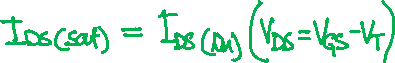 I_DS(sat) = I_DS(lin) (V_DS = V_GS - V_T)